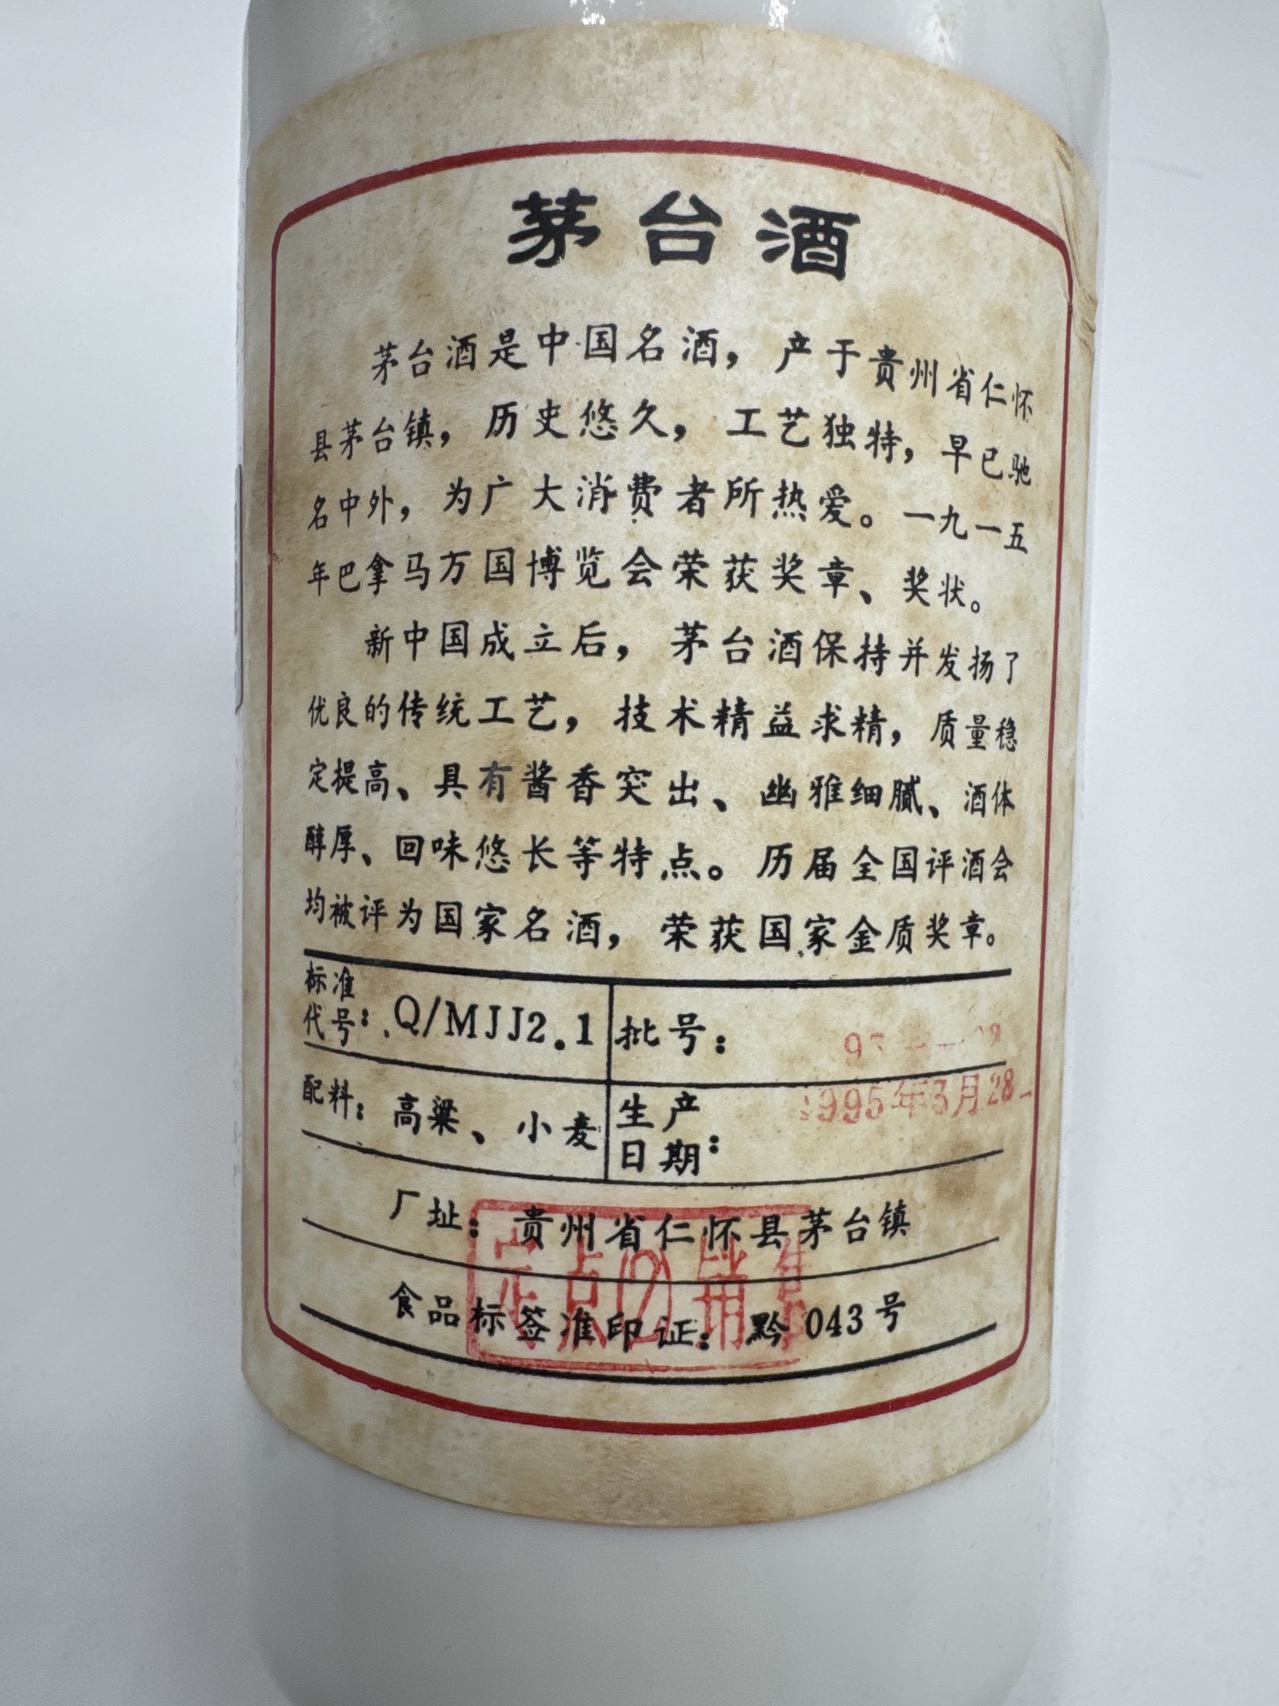 茅台酒
茅台酒是中国名酒，产于贵州省仁怀
县茅台镇，历史悠久，工艺独特，早已驰
名中外，为广大消费者所热爱。一九一五
年巴拿马万国博览会荣获奖章、奖状。
新中国成立后，茅台酒保持并发扬了
优良的传统工艺，技术精益求精，质量稳
定提高、具有酱香突出、幽雅细腻、酒体
醇厚、回味悠长等特点。历届全国评酒会
均被评为国家名酒，荣获国家金质奖章。
标准代号：Q/MJJ2.1 批号：
配料：高粱、小麦 生产日期：1995年3月28
厂址：贵州省仁怀县茅台镇
定点(2)销售
食品标签准印证：黔043号